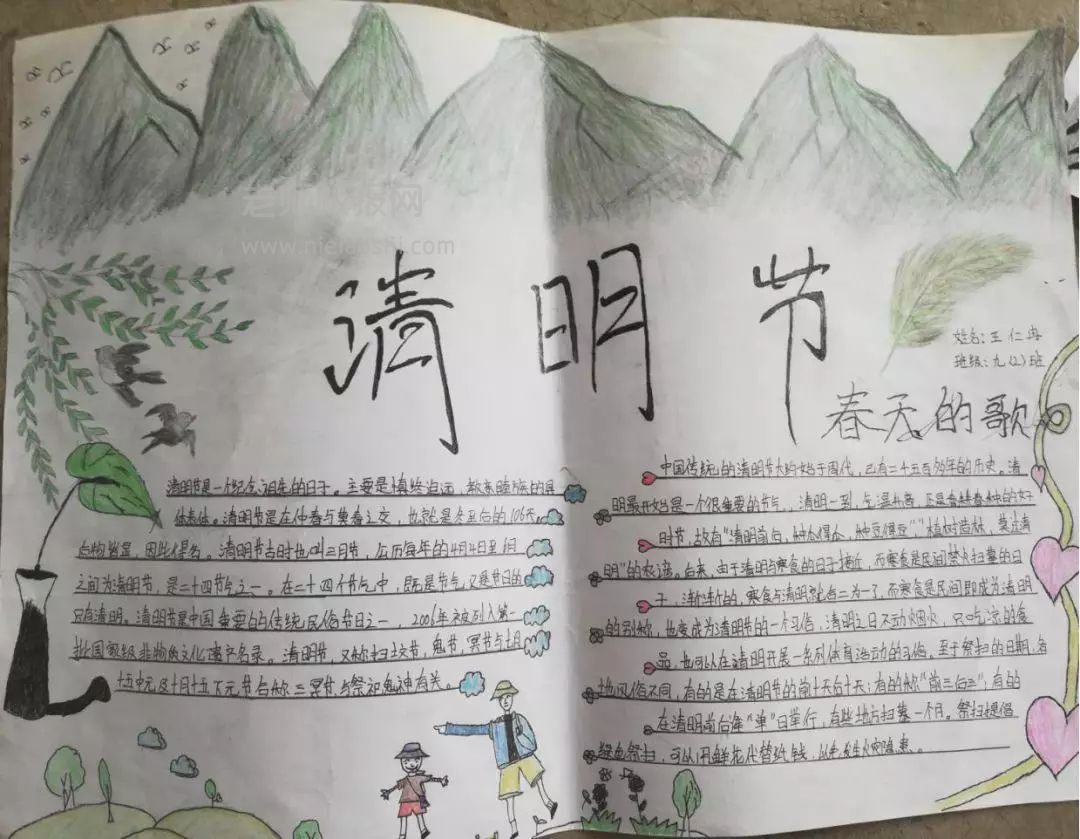 老师板报网
www.nielaoshi.com
清明节
姓名:王仁冉
班级:九(2)班
春天的歌
清明节是一个纪念祖先的日子。主要是慎终追远、敦亲睦族的具
体表体。清明节是在仲春与暮春之交,也就是冬至后的106天。
台物皆显,因此得名。清明节古时也叫三月节,公历每年的4月4日至
之间为清明节,是二十四节气之一。在二十四个节气中,既是节气又是节日的
只有清明。清明节是中国重要的传统民俗节日之一,2006年被列入第一
批国家级非物质文化遗产名录。清明节,又称扫坟节、鬼节、冥节与七月
十五中元及十月十五下元节合称三冥节与祭祀鬼神有关。
中国传统的清明节大约始于周代,已有二千五百多年的历史。清
明最开始是一个很重要的节气,清明一到,气温升高,正是春耕春种的大好
时节,故有“清明前后,种瓜得瓜,种豆得豆”,“植树造林,莫过清
明”的农谚。后来,由于清明与寒食的日子接近,而寒食是民间禁火扫墓的日
子,渐渐的,寒食与清明就合二为一了,而寒食是民间即成为清明
的别称,也变成为清明节的一个习俗,清明之日不动烟火,只吃凉的食
品,也可以在清明开展一系列体育活动的习俗。至于祭扫的日期,各
地风俗不同,有的是在清明节的前十天后十天;有的称“前三后三”;有的
在清明前后逢“单”日举行,有些地方扫墓一个月。祭扫提倡
绿色祭扫,可以用鲜花代替纸钱,以免发生火灾隐患。